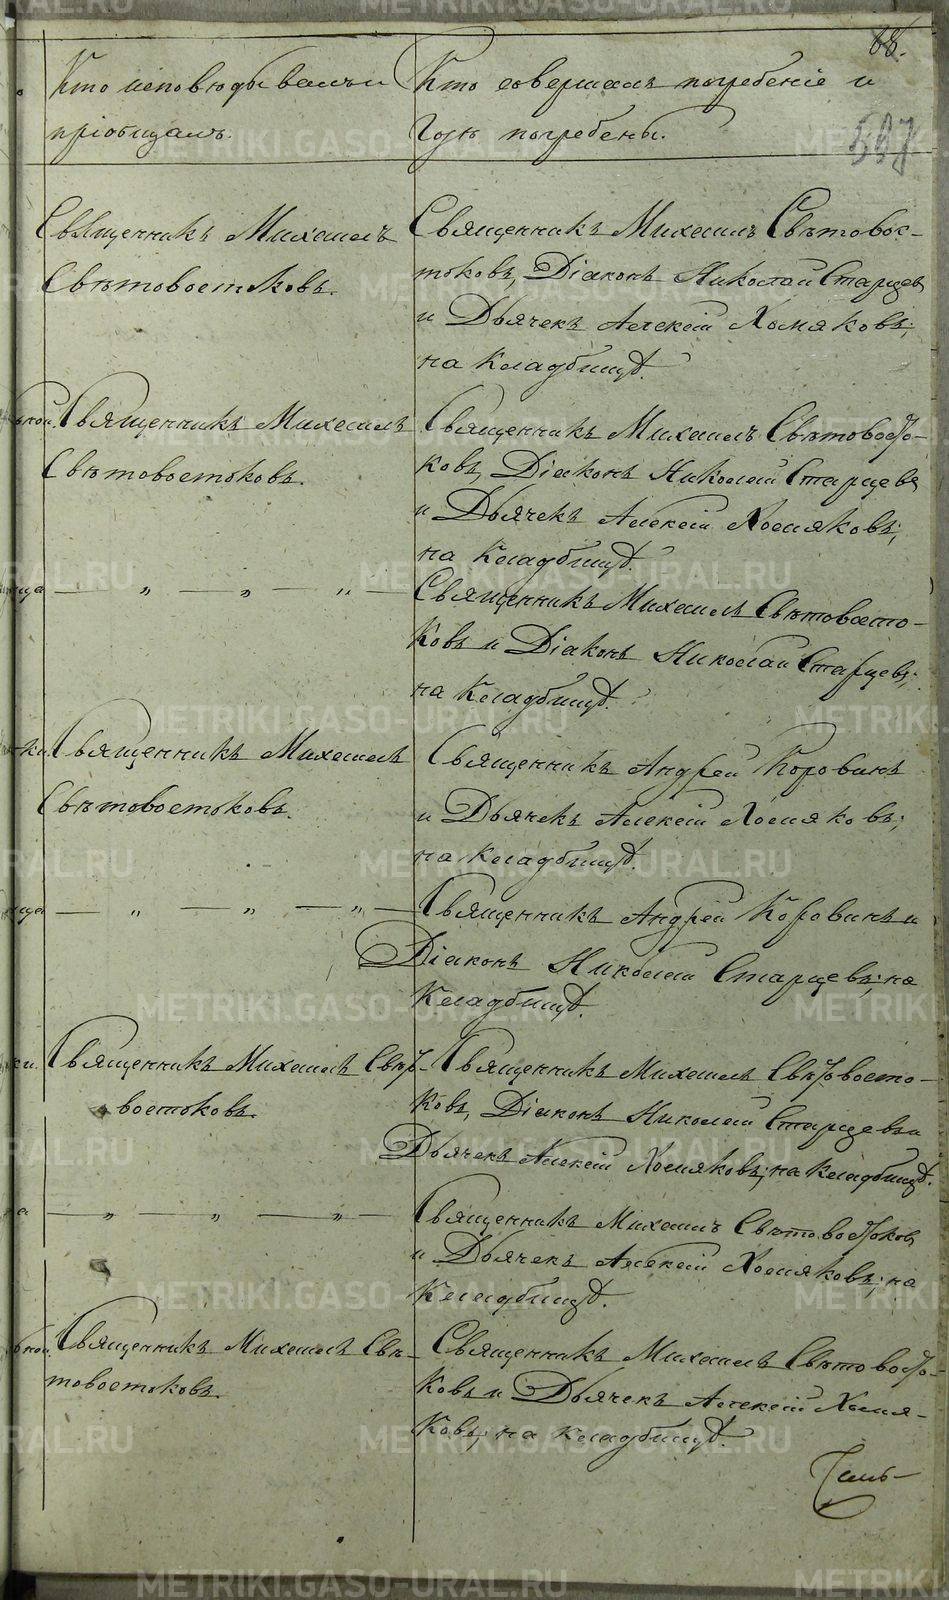 88.
587
Кто исповѣдывалъ и
пріобщалъ.
Кто совершалъ погребеніе и
гдѣ погребены.
Священникъ Михаилъ
Свѣтовостоковъ.
Священникъ Михаилъ Свѣтовос-
токовъ, Діаконъ Николай Старцевъ
и Дьячекъ Алексій Хомяковъ;
на кладбищѣ.
Священникъ Михаилъ
Свѣтовостоковъ.
Священникъ Михаилъ Свѣтовосто-
ковъ, Діаконъ Николай Старцевъ
и Дьячекъ Алексій Хомяковъ;
на кладбищѣ.
— „ — „ — „ —
Священникъ Михаилъ Свѣтовосто-
ковъ и Діаконъ Николай Старцевъ;
на кладбищѣ.
Священникъ Михаилъ
Свѣтовостоковъ.
Священникъ Андрей Коровинъ
и Дьячекъ Алексій Хомяковъ;
на кладбищѣ.
— „ — „ — „ —
Священникъ Андрей Коровинъ и
Діаконъ Николай Старцевъ; на
кладбищѣ.
Священникъ Михаилъ Свѣто-
востоковъ.
Священникъ Михаилъ Свѣтовосто-
ковъ, Діаконъ Николай Старцевъ и
Дьячекъ Алексій Хомяковъ; на кладбищѣ.
— „ — „ — „ —
Священникъ Михаилъ Свѣтовостоковъ
и Дьячекъ Алексій Хомяковъ; на
кладбищѣ.
Священникъ Михаилъ Свѣ-
товостоковъ.
Священникъ Михаилъ Свѣтовосто-
ковъ и Дьячекъ Алексій Хомя-
ковъ; на кладбищѣ.
METRIKI.GASO-URAL.RU